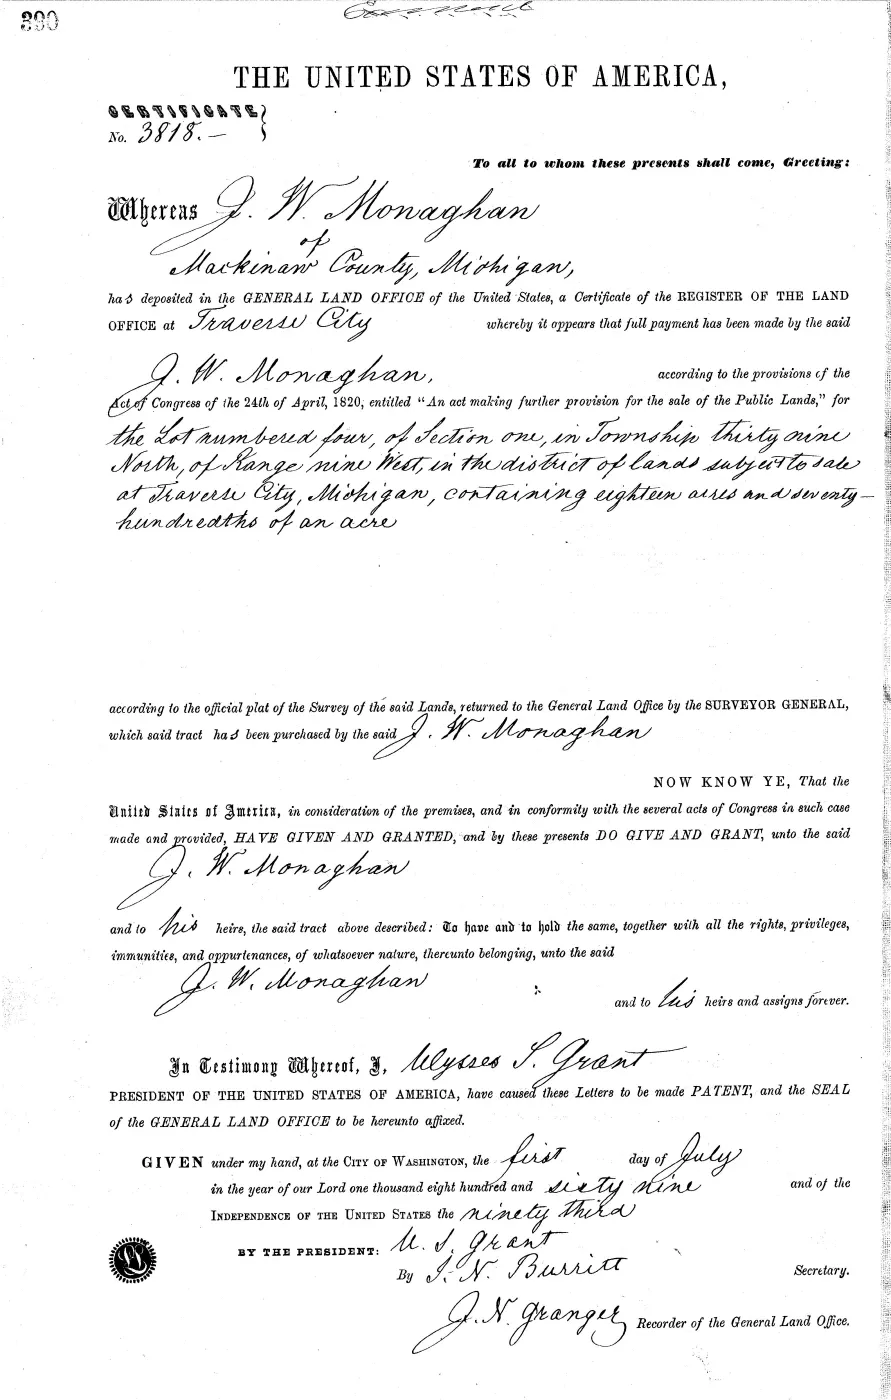 390
THE UNITED STATES OF AMERICA,
CERTIFICATE
No. 3818.—
To all to whom these presents shall come, Greeting:
Whereas J. W. Monaghan
of
Mackinaw County, Michigan,
has deposited in the GENERAL LAND OFFICE of the United States, a Certificate of the REGISTER OF THE LAND
OFFICE at Traverse City whereby it appears that full payment has been made by the said
J. W. Monaghan, according to the provisions of the
Act of Congress of the 24th of April, 1820, entitled "An act making further provision for the sale of the Public Lands," for
the Lot numbered four, of Section one, in Township thirty nine
North, of Range nine West, in the district of lands subject to sale
at Traverse City, Michigan, containing eighteen acres and seventy—
hundredths of an acre
according to the official plat of the Survey of the said Lands, returned to the General Land Office by the SURVEYOR GENERAL,
which said tract has been purchased by the said J. W. Monaghan
NOW KNOW YE, That the
United States of America, in consideration of the premises, and in conformity with the several acts of Congress in such case
made and provided, HAVE GIVEN AND GRANTED, and by these presents DO GIVE AND GRANT, unto the said
J. W. Monaghan
and to his heirs, the said tract above described: To have and to hold the same, together with all the rights, privileges,
immunities, and appurtenances, of whatsoever nature, thereunto belonging, unto the said
J. W. Monaghan
and to his heirs and assigns forever.
In Testimony Whereof, I, Ulysses S. Grant
PRESIDENT OF THE UNITED STATES OF AMERICA, have caused these Letters to be made PATENT, and the SEAL
of the GENERAL LAND OFFICE to be hereunto affixed.
GIVEN under my hand, at the CITY OF WASHINGTON, the first day of July
in the year of our Lord one thousand eight hundred and sixty nine and of the
INDEPENDENCE OF THE UNITED STATES the ninety third
BY THE PRESIDENT: U. S. Grant
By J. N. Burritt Secretary.
J. N. Granger Recorder of the General Land Office.